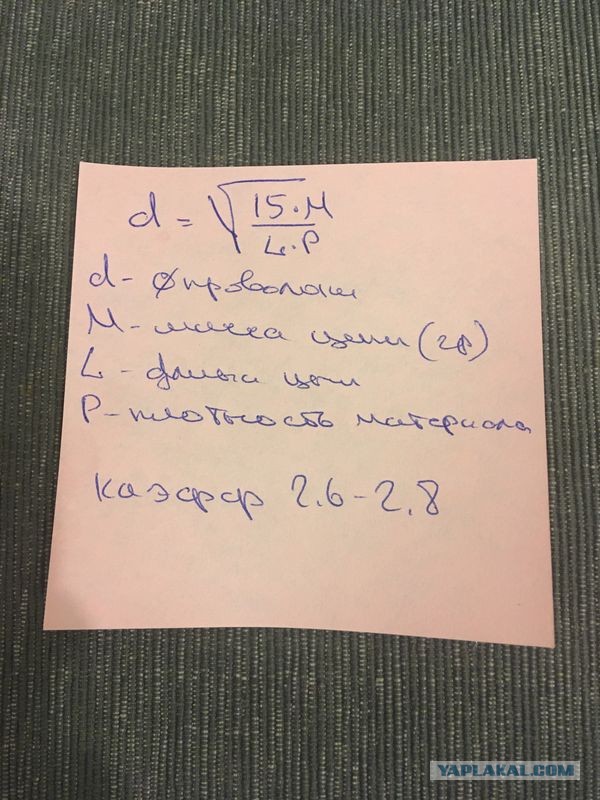 d = √(15·М / L·Р)
d - ⌀ проволоки
М - масса цепи (гр)
L - длина цепи
Р - плотность материала
каэфф 2,6 - 2,8
YAPLAKAL.COM